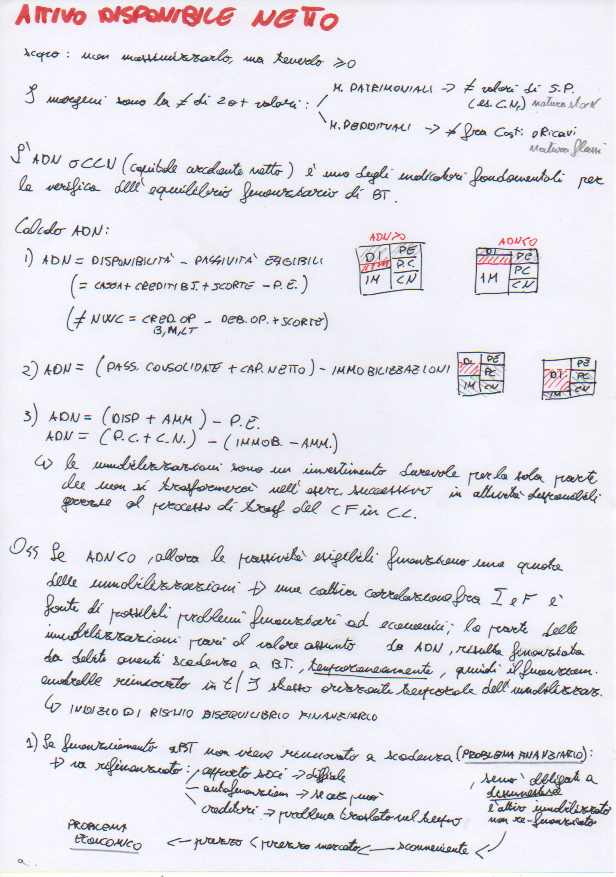 ATTIVO DISPONIBILE NETTO
scopo: non massimizzarlo, ma tenerlo ≥0
I margini sono la ≠ di 2 o + valori:
M. PATRIMONIALI → ≠ valori di S.P.
(es. C.N.) natura stock
M. REDDITUALI → ≠ fra Costi e Ricavi
natura flussi
L'ADN o CCN (capitale circolante netto) è uno degli indicatori fondamentali per
la verifica dell'equilibrio finanziario di BT.
Calcolo ADN:
ADN>0
DI PE
PC
IM CN
ADN<0
DI PE
IM PC
CN
1) ADN = DISPONIBILITÀ - PASSIVITÀ ESIGIBILI
(= CASSA + CREDITI BT. + SCORTE - P.E.)
(≠ NWC = CRED. OP - DEB. OP. + SCORTE)
B,M,LT
2) ADN = (PASS. CONSOLIDATE + CAP. NETTO) - IMMOBILIZZAZIONI
DI PE
PC
IM CN
PE
DI PC
IM CN
3) ADN = (DISP + AMM) - P.E.
ADN = (P.C. + C.N.) - (IMMOB. - AMM.)
le immobilizzazioni sono un investimento durevole per la sola parte
che non si trasformerà nell'eserc. successivo in attività disponibili
grazie al processo di trasf del CF in CC.
Oss. Se ADN<0, allora le passività esigibili finanziano una quota
delle immobilizzazioni → una cattiva correlazione fra I e F è
fonte di possibili problemi finanziari ed economici; la parte delle
immobilizzazioni pari al valore assunto da ADN, risulta finanziata
da debiti aventi scadenza a BT., temporaneamente, quindi il finanziam.
andrebbe rinnovato in t/ stesso orizzonte temporale dell'immobilizzaz.
INDIZIO DI RISCHIO DISEQUILIBRIO FINANZIARIO
1) Se finanziamento a BT non viene rinnovato a scadenza (PROBLEMA FINANZIARIO):
→ va rifinanziato: apporto soci → difficile
autofinanziam → se si può
creditori → problema traslato nel tempo
, sennò obbligati a
disinvestire
l'attivo immobilizzato
non re-finanziato
PROBLEMA
ECONOMICO ← prezzo < prezzo mercato ← sconveniente